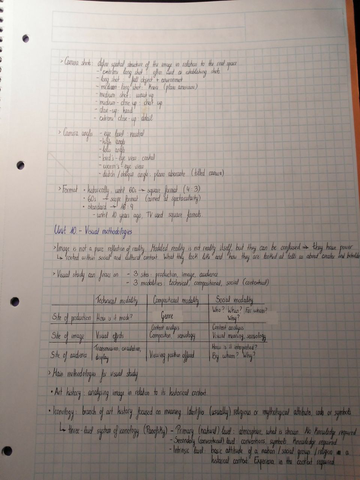 · Camera shot: define spatial direction of the image in relation to the
- extreme long shot: often used as establishing shots
- long shot: full object + environment
- medium long shot: knee (plan américain)
- medium shot: waist up
- medium close up: chest up
- close-up: head
- extreme close up: detail
· Camera angle: - eye level: neutral
- high angle
- low angle
- bird's eye view: control
- worm's eye view
- dutch / oblique angle: (tilted camera)
· Format: - historically, until 60s → square format (4:3)
- 60s → format
- standard → 16:9
- until 10 years ago, TV and square formats
Unit 10 - Visual methodologies
· Image is not a pure reflection of reality. reality is not reality itself, but they can be confused → they have power.
↳ created within social and cultural context. What they look like and how they are looked at tells us about
· Visual study can focus in - 3 sites: production, image, audience
- 3 modalities: technical, compositional, social
Technical modality Compositional modality Social modality
Site of production How is it made? Genre Who? When? For whom? Why?
Site of image Visual effects Content analysis Compositional Content analysis Visual meaning, semiology
Site of audience Transmission, circulation, display Viewing position offered How is it interpreted? By whom? Why?
· Main methodologies for visual study
· Art history: analysing image in relation to its historical context
· Iconology: branch of art history, focused on meaning. Identifies (usually) religious or mythological attributes, code or symbols
↳ three-level system of iconology (Panofsky) - Primary (natural) level: what is shown. No knowledge required
- Secondary (conventional) level: conventions, symbols. Knowledge required
- Intrinsic level: basic attitude of a nation / social group / religion in a
historical context. the context required